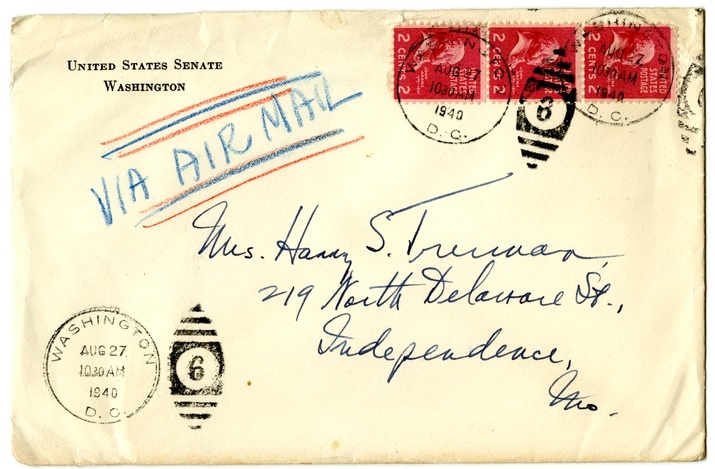 UNITED STATES SENATE
WASHINGTON
VIA AIR MAIL
2 CENTS 2
2 CENTS 2
2 CENTS 2
UNITED STATES POSTAGE
WASHINGTON
AUG 27
10 30 AM
1940
D. C.
6
WASHINGTON
AUG 27
10 30 AM
1940
D. C.
Mrs. Harry S. Truman,
219 North Delaware St.,
Independence,
Mo.
WASHINGTON
AUG 27
10 30 AM
1940
D. C.
6